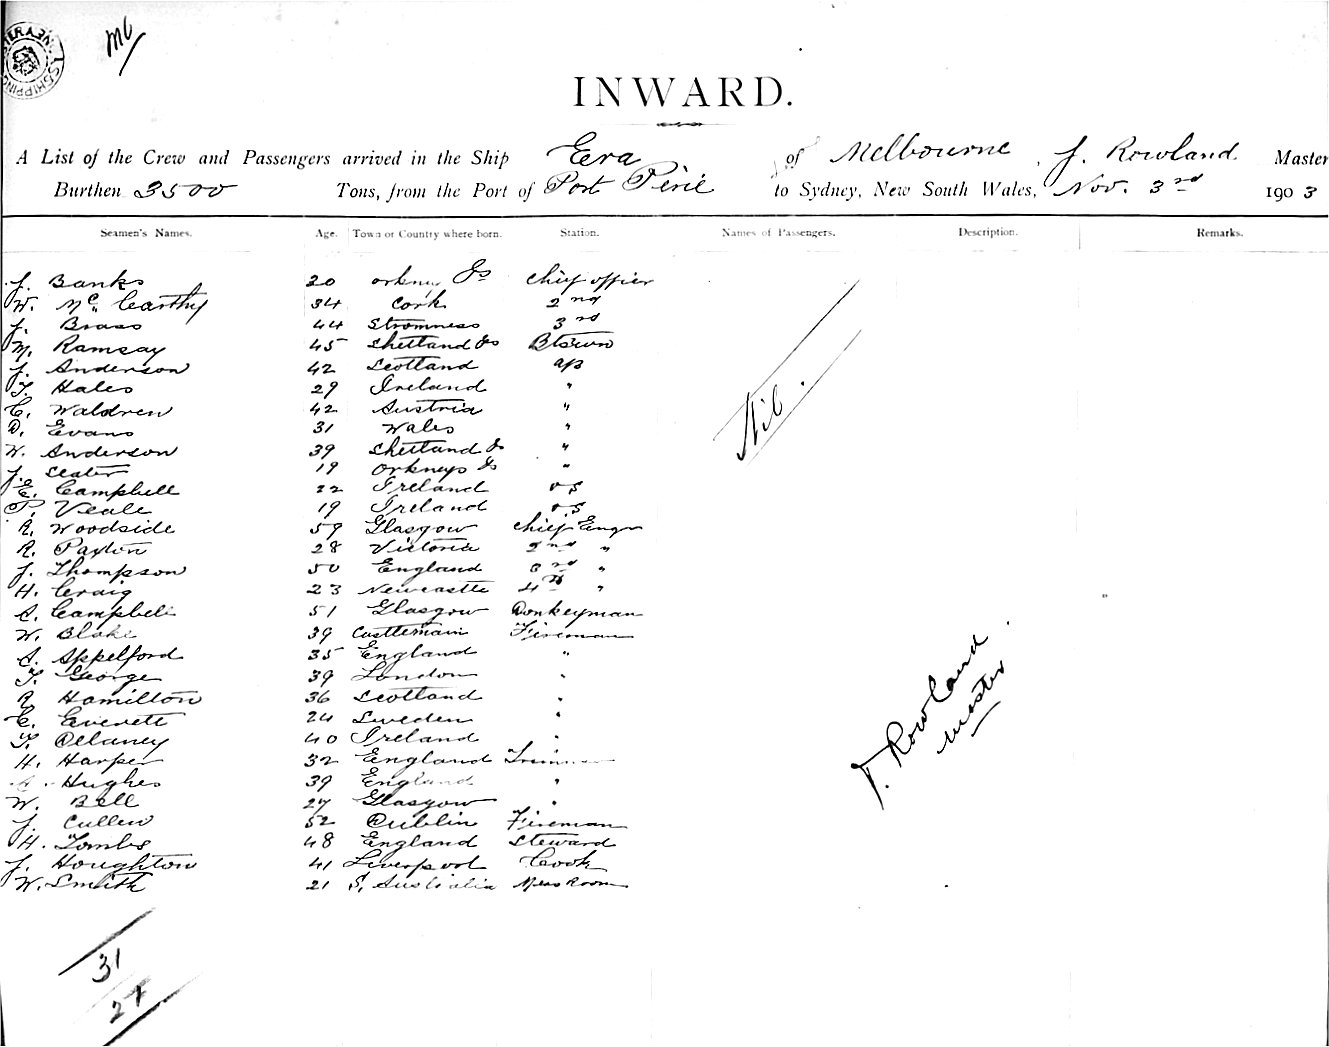 M6/
INWARD.
A List of the Crew and Passengers arrived in the Ship Era of Melbourne, J. Rowland Master
Burthen 3500 Tons, from the Port of Port Pirie to Sydney, New South Wales, Nov. 3rd 1903
Seamen's Names. Age. Town or Country where born. Station. Names of Passengers. Description. Remarks.
J. Banks 20 Orkney Is Chief Officer
W. McCarthy 34 Cork 2nd
J. Brass 44 Stromness 3rd
M. Ramsay 45 Shetland Is Btswn
J. Anderson 42 Scotland AB
T. Hales 29 Ireland "
C. Waldren 42 Austria "
D. Evans 31 Wales "
W. Anderson 39 Shetland Is "
J. Slater 19 Orkneys Is "
E. Campbell 22 Ireland OS
P. Veale 19 Ireland O.S
R. Woodside 59 Glasgow Chief Engr
R. Paxton 28 Victoria 2nd "
J. Thompson 50 England 3rd "
H. Craig 23 Newcastle 4th "
A. Campbell 51 Glasgow Donkeyman
W. Blake 39 Castlemain Fireman
A. Appelford 35 England "
T. George 39 London "
R. Hamilton 36 Scotland "
C. Everett 24 Sweden "
T. Delaney 40 Ireland "
H. Harper 32 England Trimmer
Hughes 39 England "
W. Bell 27 Glasgow "
J. Cullen 52 Dublin Fireman
H. Tombs 48 England Steward
J. Houghton 41 Liverpool Cook
W. Smith 21 S. Australia Mess Room
Nil.
T. Rowland
Master
31
27